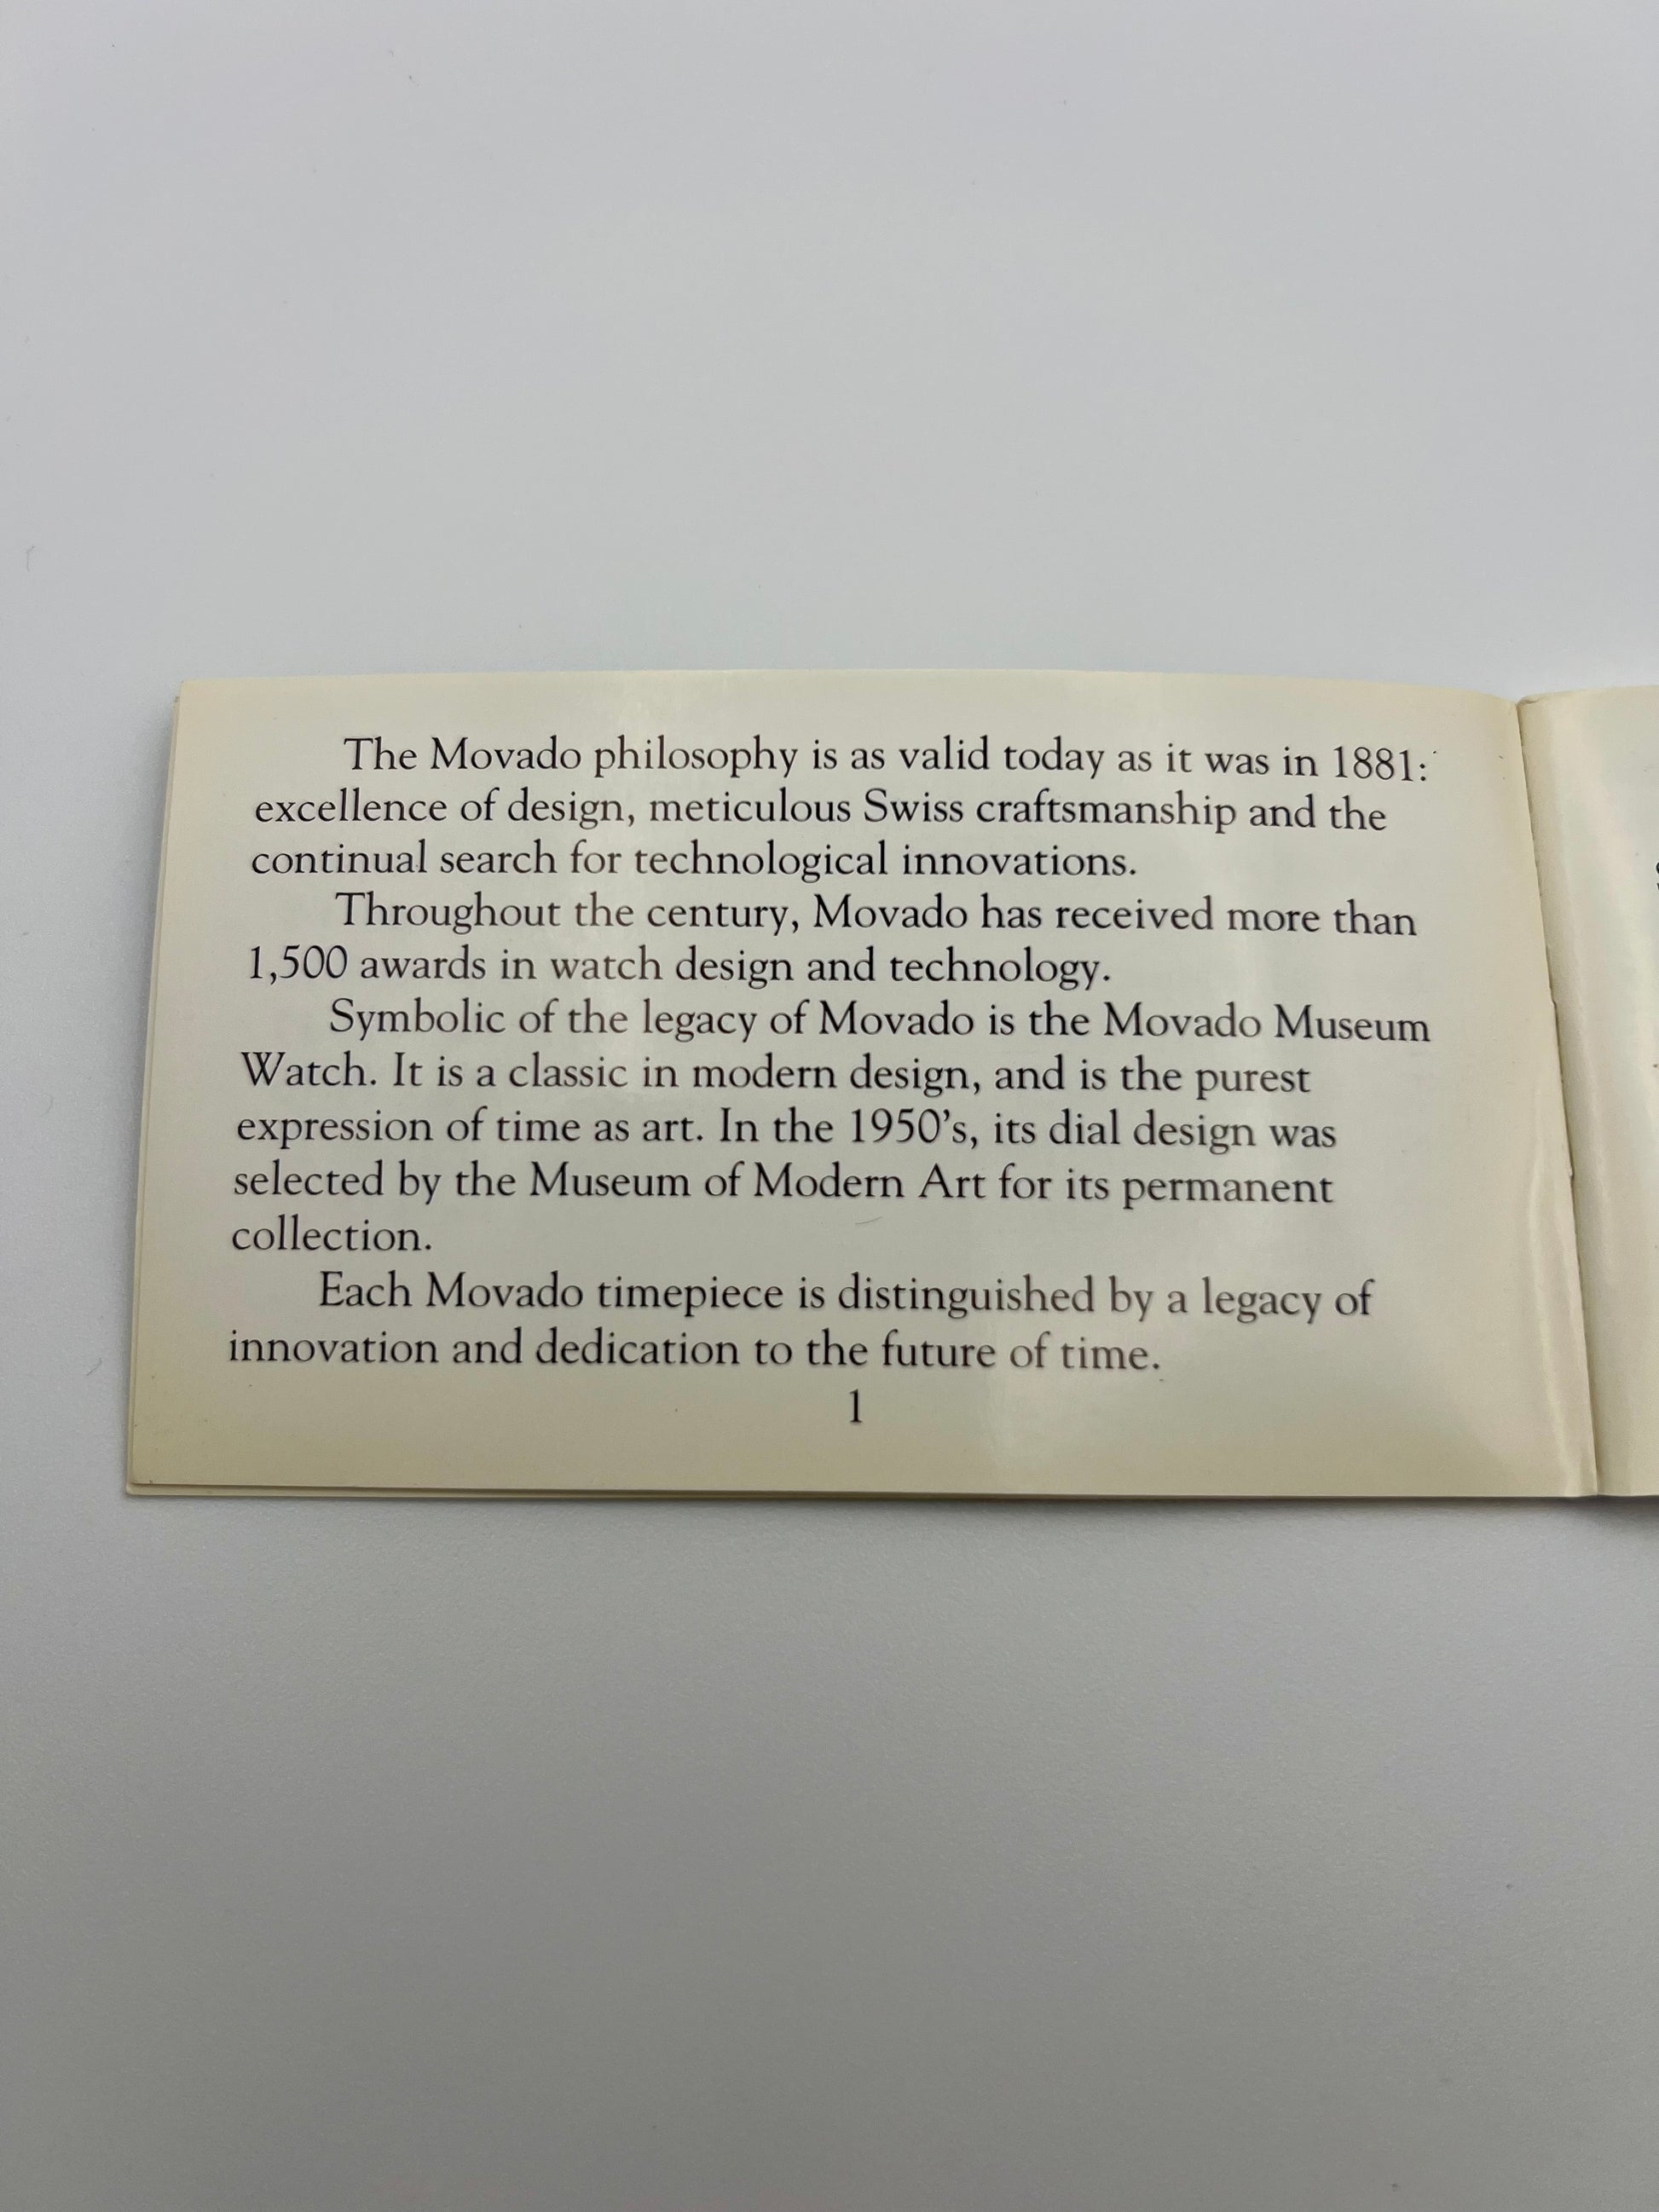 The Movado philosophy is as valid today as it was in 1881:
excellence of design, meticulous Swiss craftsmanship and the
continual search for technological innovations.
Throughout the century, Movado has received more than
1,500 awards in watch design and technology.
Symbolic of the legacy of Movado is the Movado Museum
Watch. It is a classic in modern design, and is the purest
expression of time as art. In the 1950’s, its dial design was
selected by the Museum of Modern Art for its permanent
collection.
Each Movado timepiece is distinguished by a legacy of
innovation and dedication to the future of time.
1